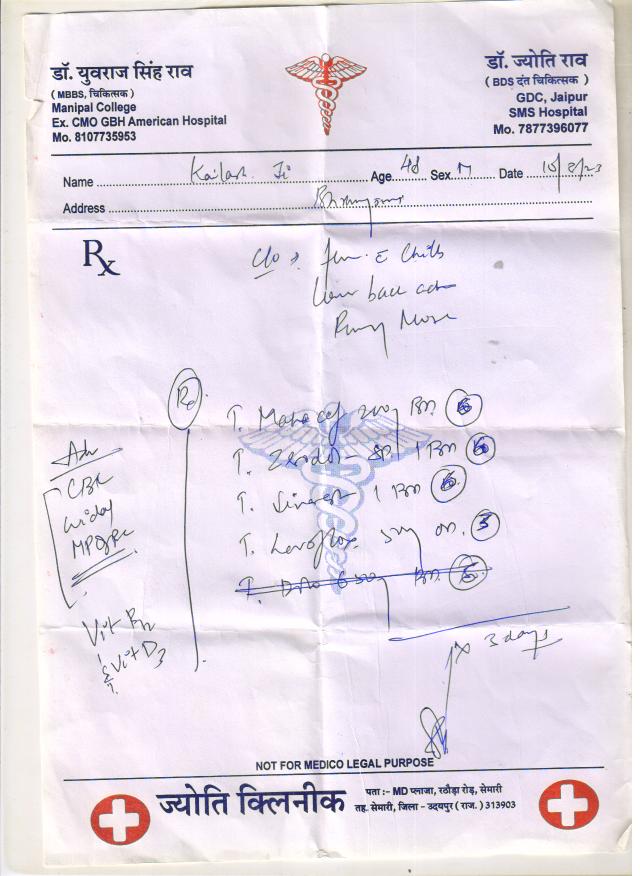 डॉ. युवराज सिंह राव
( MBBS, चिकित्सक )
Manipal College
Ex. CMO GBH American Hospital
Mo. 8107735953
डॉ. ज्योति राव
( BDS दंत चिकित्सक )
GDC, Jaipur
SMS Hospital
Mo. 7877396077
Name Kailash Ji Age 48 Sex M Date
Address
Rx
C/o Chills
back
Nose
T. 200 BD 6
T. Zerodol SP 1 BD 6
T. Sinarest 1 BD 6
T. 5mg OD 3
T. BD 6
Adv
CBC
Widal
Vit B12
Vit D3
x 3 days
NOT FOR MEDICO LEGAL PURPOSE
ज्योति क्लिनीक
पता :- MD प्लाजा, रठौड़ा रोड़, सेमारी
तह. सेमारी, जिला - उदयपुर ( राज. ) 313903